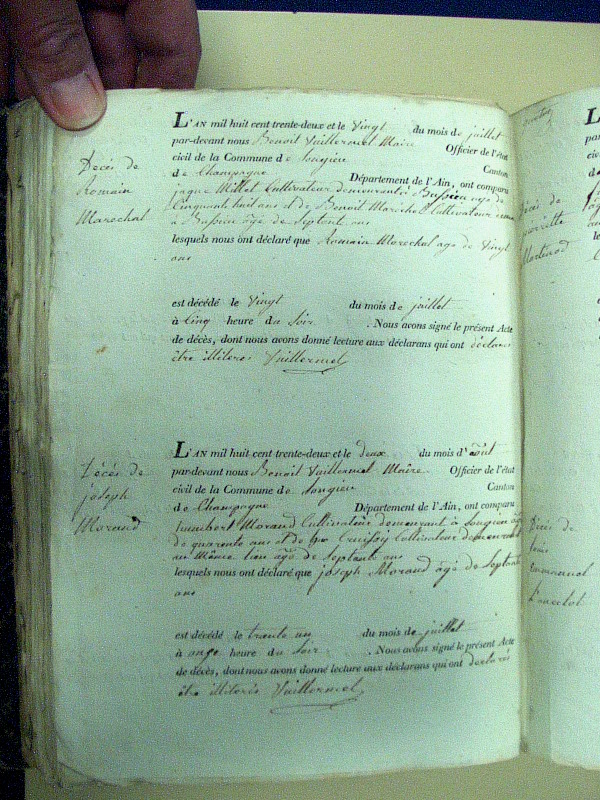 Décès de
Romain
Marechal
L'AN mil huit cent trente-deux et le Vingt du mois de juillet
par-devant nous Benoit Vuillermel Maire Officier de l'état
civil de la Commune de Songieu Canton
de Champagne Département de l'Ain, ont comparu
jaque Millet Cultivateur demeurant à Bassieu age de
Cinquant huit ans et de Benoit Maréchal Cultivateur
à Bassieu âgé de Septant ans
lesquels nous ont déclaré que Romain Marechal age de Vingt
ans
est décédé le Vingt du mois de juillet
à Cinq heure du Soir . Nous avons signé le présent Acte
de décès, dont nous avons donné lecture aux déclarans qui ont déclaré
être illiteres Vuillermel
Décés de
joseph
Morand
L'AN mil huit cent trente-deux et le deux du mois d'août
par-devant nous Benoit Vuillermel Maire Officier de l'état
civil de la Commune de Songieu Canton
de Champagne Département de l'Ain, ont comparu
humbert Morand Cultivateur demeurant à Songieu âgé
de quarente ans et de Cultivateur demeurant
au Même lieu âgé de Septante ans
lesquels nous ont déclaré que joseph Morand âgé de Septante
ans
est décédé le trente un du mois de juillet
à onze heure du Soir . Nous avons signé le présent Acte
de décès, dont nous avons donné lecture aux déclarans qui ont déclarés
être illiterés Vuillermel
Décés de
Martinod
Décès de
Emmanuel